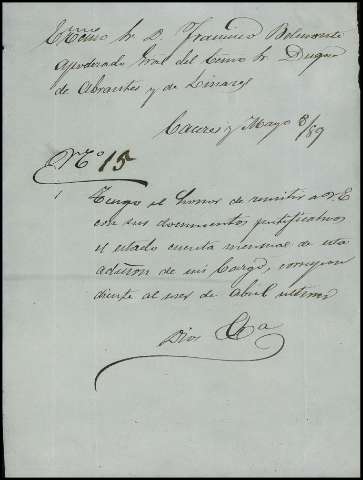 Excmo Sr D. Francisco Belmonte
Apoderado Gral del Excmo Sr Duque
de Abrantes y de Linares
Caceres y Mayo 8/89
No 15
Tengo el honor de remitir a V.E
con sus documentos justificativos
el estado cuenta mensual de esta
admon de mi Cargo, correspon
diente al mes de Abril ultimo
Dios &a